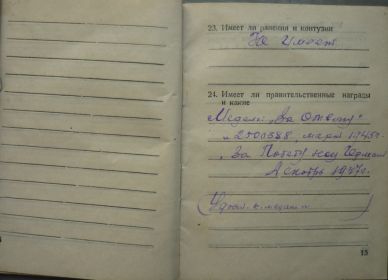 23. Имеет ли ранения и контузии
Не имеет
24. Имеет ли правительственные награды
и какие
Медаль „За Отвагу"
март 1945г.
„За Победу над Герман
1947г.
15